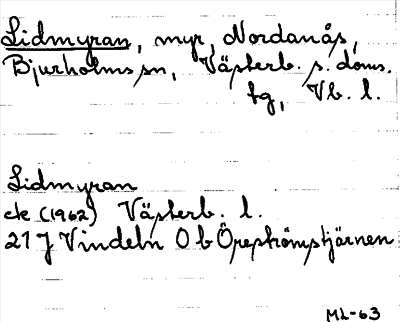 Lidmyran, myr, Nordanås,
Bjurholms sn, Västerb. s. doms.
tg, Vb. l.
Lidmyran
ek (1962) Västerb. l.
21 J Vindeln 0 b Örepströmstjärnen
ML-63